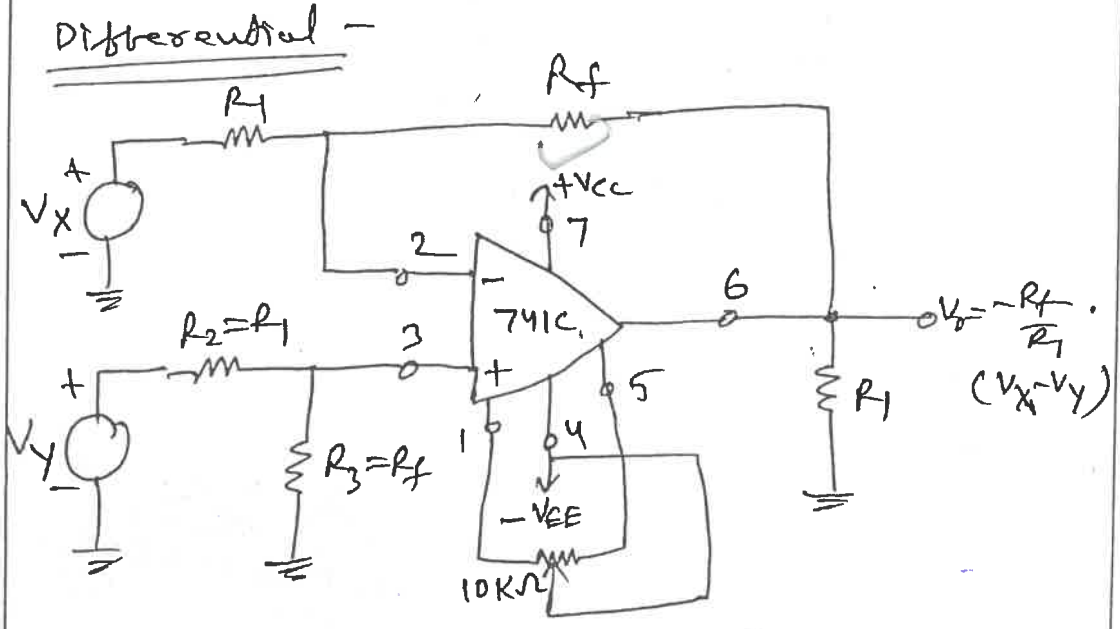 Differential -
R1
Rf
+
Vx
-
+Vcc
7
2
-
741C
+
6
Vo = -Rf/R1 .
(Vx - Vy)
R2=R1
3
+
Vy
-
R3=Rf
1
4
5
R1
-VEE
10KΩ